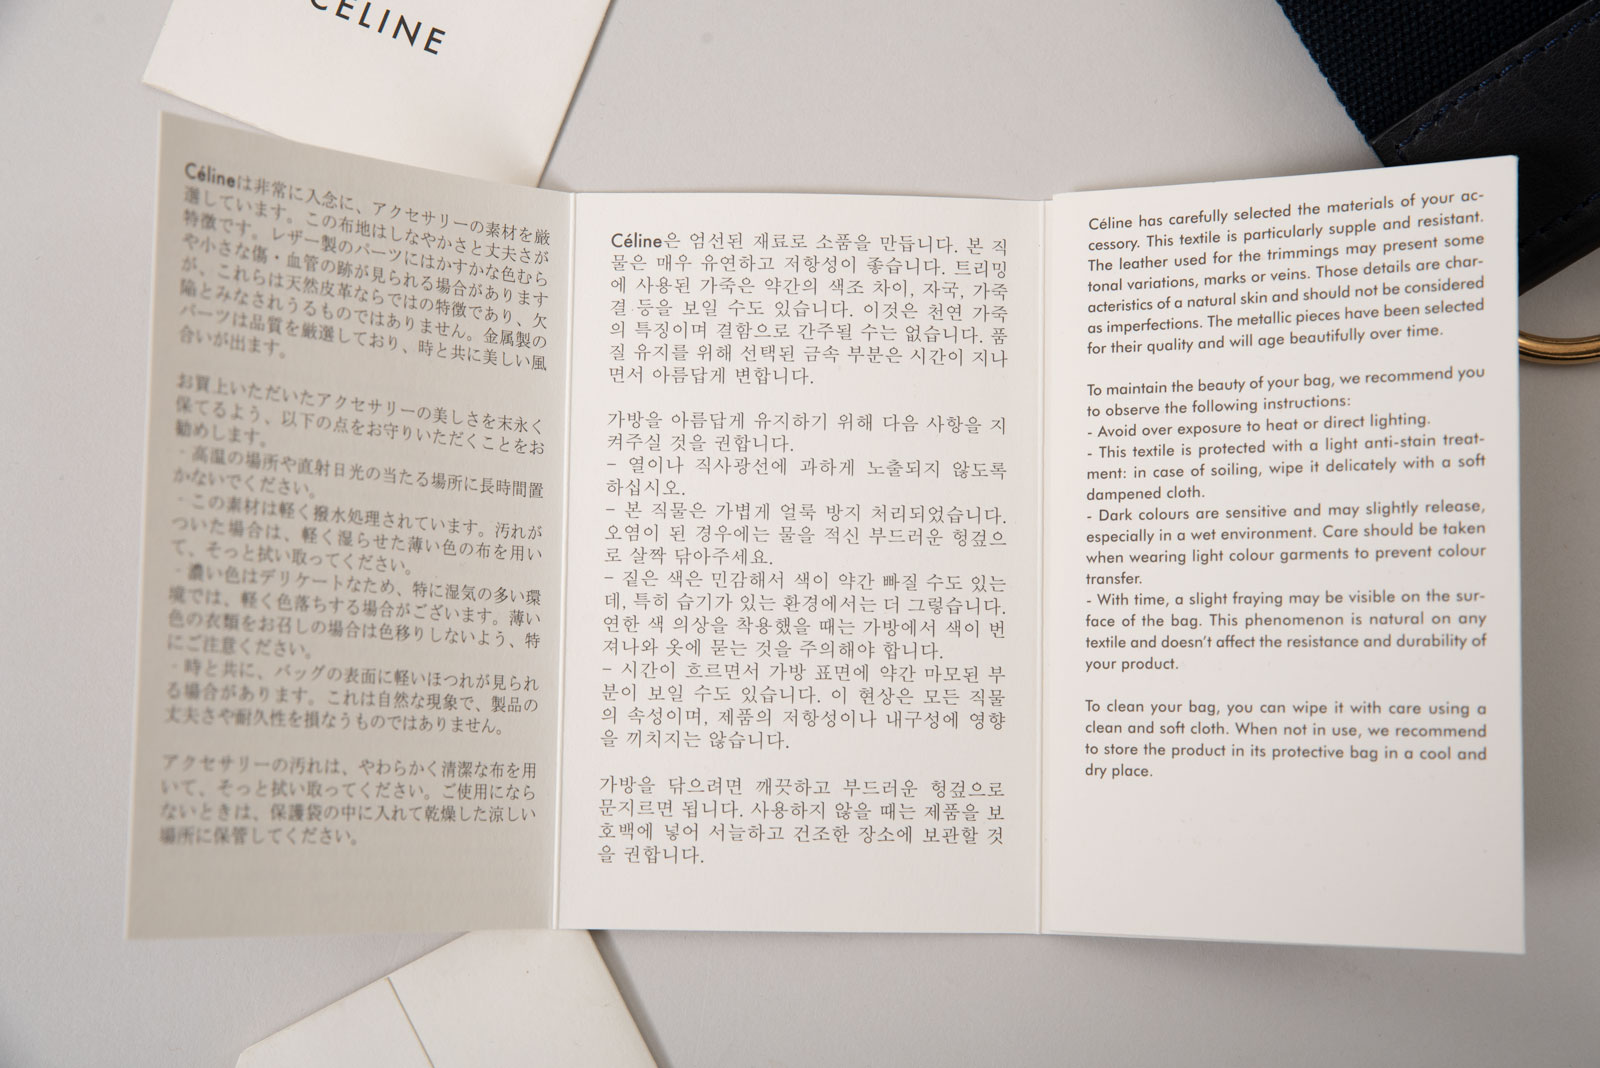 CÉLINE
Célineは非常に入念に、アクセサリーの素材を厳
選しています。この布地はしなやかさと丈夫さが
特徴です。レザー製のパーツにはかすかな色むら
や小さな傷・血管の跡が見られる場合があります
が、これらは天然皮革ならではの特徴であり、欠
陥とみなされうるものではありません。金属製の
パーツは品質を厳選しており、時と共に美しい風
合いが出ます。
お買上いただいたアクセサリーの美しさを末永く
保てるよう、以下の点をお守りいただくことをお
勧めします。
- 高温の場所や直射日光の当たる場所に長時間置
かないでください。
- この素材は軽く撥水処理されています。汚れが
ついた場合は、軽く湿らせた薄い色の布を用い
て、そっと拭い取ってください。
- 濃い色はデリケートなため、特に湿気の多い環
境では、軽く色落ちする場合がございます。薄い
色の衣類をお召しの場合は色移りしないよう、特
にご注意ください。
- 時と共に、バッグの表面に軽いほつれが見られ
る場合があります。これは自然な現象で、製品の
丈夫さや耐久性を損なうものではありません。
アクセサリーの汚れは、やわらかく清潔な布を用
いて、そっと拭い取ってください。ご使用になら
ないときは、保護袋の中に入れて乾燥した涼しい
場所に保管してください。
Céline은 엄선된 재료로 소품을 만듭니다. 본 직
물은 매우 유연하고 저항성이 좋습니다. 트리밍
에 사용된 가죽은 약간의 색조 차이, 자국, 가죽
결 등을 보일 수도 있습니다. 이것은 천연 가죽
의 특징이며 결함으로 간주될 수는 없습니다. 품
질 유지를 위해 선택된 금속 부분은 시간이 지나
면서 아름답게 변합니다.
가방을 아름답게 유지하기 위해 다음 사항을 지
켜주실 것을 권합니다.
– 열이나 직사광선에 과하게 노출되지 않도록
하십시오.
– 본 직물은 가볍게 얼룩 방지 처리되었습니다.
오염이 된 경우에는 물을 적신 부드러운 헝겊으
로 살짝 닦아주세요.
– 짙은 색은 민감해서 색이 약간 빠질 수도 있는
데, 특히 습기가 있는 환경에서는 더 그렇습니다.
연한 색 의상을 착용했을 때는 가방에서 색이 번
져나와 옷에 묻는 것을 주의해야 합니다.
– 시간이 흐르면서 가방 표면에 약간 마모된 부
분이 보일 수도 있습니다. 이 현상은 모든 직물
의 속성이며, 제품의 저항성이나 내구성에 영향
을 끼치지는 않습니다.
가방을 닦으려면 깨끗하고 부드러운 헝겊으로
문지르면 됩니다. 사용하지 않을 때는 제품을 보
호백에 넣어 서늘하고 건조한 장소에 보관할 것
을 권합니다.
Céline has carefully selected the materials of your ac-
cessory. This textile is particularly supple and resistant.
The leather used for the trimmings may present some
tonal variations, marks or veins. Those details are char-
acteristics of a natural skin and should not be considered
as imperfections. The metallic pieces have been selected
for their quality and will age beautifully over time.
To maintain the beauty of your bag, we recommend you
to observe the following instructions:
- Avoid over exposure to heat or direct lighting.
- This textile is protected with a light anti-stain treat-
ment: in case of soiling, wipe it delicately with a soft
dampened cloth.
- Dark colours are sensitive and may slightly release,
especially in a wet environment. Care should be taken
when wearing light colour garments to prevent colour
transfer.
- With time, a slight fraying may be visible on the sur-
face of the bag. This phenomenon is natural on any
textile and doesn't affect the resistance and durability of
your product.
To clean your bag, you can wipe it with care using a
clean and soft cloth. When not in use, we recommend
to store the product in its protective bag in a cool and
dry place.